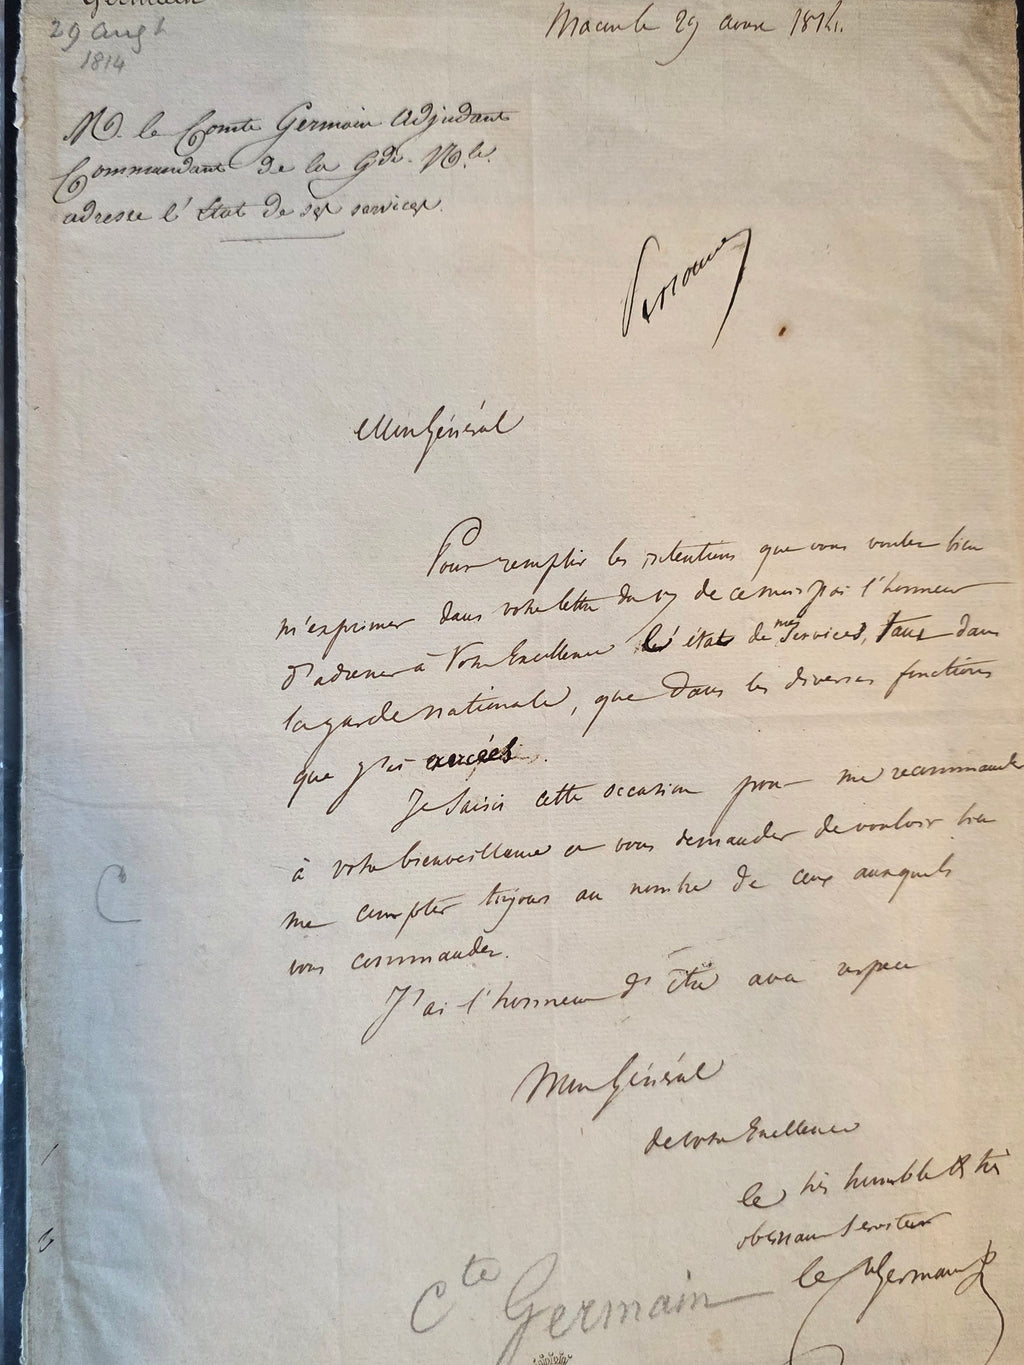 Germain
29 aug t
1814
29 aout 1814.
M. le Comte Germain Adjudant
Commandant de la Gde. Nle.
adresse l'état de ses services.
Mon Général
Pour remplir les intentions que vous voulez bien
m'exprimer dans votre lettre du 17 de ce mois j'ai l'honneur
d'adresser à Votre Excellence l'état de mes services, tant dans
la garde nationale, que dans les diverses fonctions
que j'ai exercées.
Je saisis cette occasion pour me recommander
à votre bienveillance et vous demander de vouloir bien
me compter toujours au nombre de ceux auxquels
vous commandez.
J'ai l'honneur d'être avec respect
Mon Général
de votre Excellence
le très humble & très
obéissant serviteur
le Cte Germain
Cte Germain